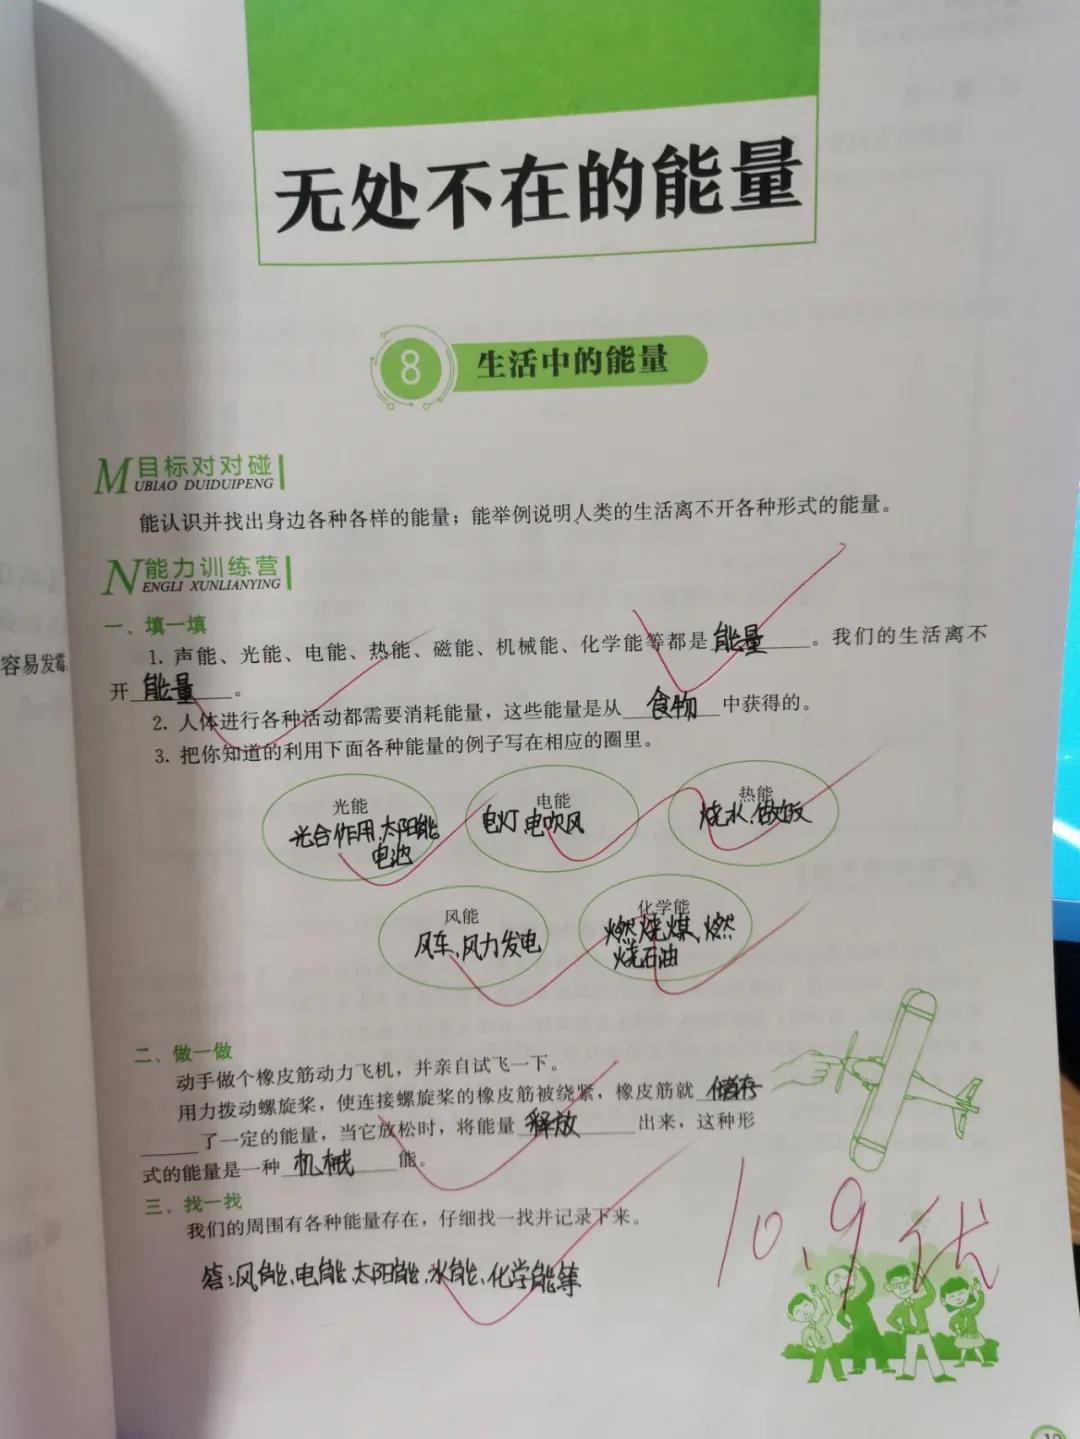 无处不在的能量
8 生活中的能量
M目标对对碰
UBIAO DUIDUIPENG
能认识并找出身边各种各样的能量；能举例说明人类的生活离不开各种形式的能量。
N能力训练营
ENGLI XUNLIANYING
一、填一填
1. 声能、光能、电能、热能、磁能、机械能、化学能等都是能量。我们的生活离不
容易发霉
开能量。
2. 人体进行各种活动都需要消耗能量，这些能量是从食物中获得的。
3. 把你知道的利用下面各种能量的例子写在相应的圈里。
光能
光合作用、太阳能
电池
电能
电灯、电吹风
热能
烧水、做饭
风能
风车、风力发电
化学能
燃烧煤、燃
烧石油
二、做一做
动手做个橡皮筋动力飞机，并亲自试飞一下。
用力拨动螺旋桨，使连接螺旋桨的橡皮筋被绕紧，橡皮筋就储存
了一定的能量，当它放松时，将能量释放出来，这种形
式的能量是一种机械能。
三、找一找
我们的周围有各种能量存在，仔细找一找并记录下来。
答：风能、电能、太阳能、水能、化学能等
10.9 优